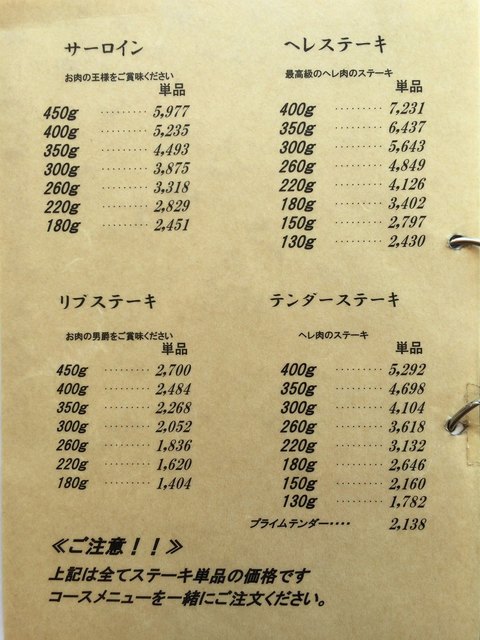 サーロイン
お肉の王様をご賞味ください
単品
450g ········· 5,977
400g ········· 5,235
350g ········· 4,493
300g ········· 3,875
260g ········· 3,318
220g ········· 2,829
180g ········· 2,451
ヘレステーキ
最高級のヘレ肉のステーキ
単品
400g ········· 7,231
350g ········· 6,437
300g ········· 5,643
260g ········· 4,849
220g ········· 4,126
180g ········· 3,402
150g ········· 2,797
130g ········· 2,430
リブステーキ
お肉の男爵をご賞味ください
単品
450g ········· 2,700
400g ········· 2,484
350g ········· 2,268
300g ········· 2,052
260g ········· 1,836
220g ········· 1,620
180g ········· 1,404
テンダーステーキ
ヘレ肉のステーキ
単品
400g ········· 5,292
350g ········· 4,698
300g ········· 4,104
260g ········· 3,618
220g ········· 3,132
180g ········· 2,646
150g ········· 2,160
130g ········· 1,782
プライムテンダー···· 2,138
≪ご注意！！≫
上記は全てステーキ単品の価格です
コースメニューを一緒にご注文ください。